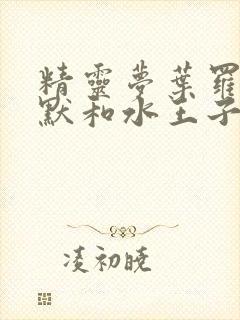 精靈夢葉羅
默和水王子
凌初曉